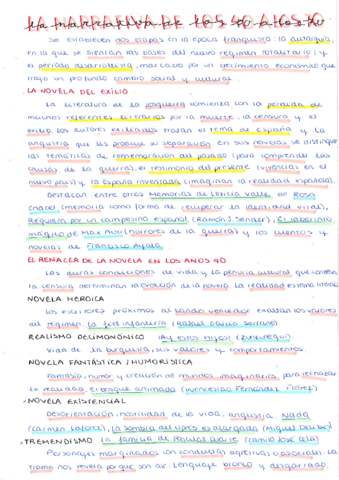 LA NARRATIVA DE LOS 40 A LOS 70
Se establecen dos etapas en la época franquista: la autarquía,
en la que se sientan las bases del nuevo régimen totalitario; y
el periodo desarrollista, marcado por un crecimiento económico que
trajo un profundo cambio social y cultural.
LA NOVELA DEL EXILIO
La literatura de la posguerra comienza con la pérdida de
muchos referentes literarios por la muerte, la censura y el
exilio. Los autores exiliados tratan el tema de españa y la
angustia que les produce su separación, en sus novelas se distinguen
las temáticas de rememoración del pasado (para comprender las
causas de la guerra), el testimonio del presente (vivencias en el
nuevo país) y la España inventada (imaginan la realidad española).
Destacan entre otros Memorias de Leticia Valle, de Rosa
Chacel (memoria como forma de recuperar la identidad vital),
Réquiem por un campesino español (Ramón J. Sender), El laberinto
mágico de Max Aub (horrores de la guerra) y los cuentos y
novelas de Francisco Ayala.
EL RENACER DE LA NOVELA EN LOS AÑOS 40
Las duras condiciones de vida y la penuria cultural que conlleva
la censura determinan la evolución de la novela. La realidad es tema literario
NOVELA HEROICA
Los escritores próximos al bando vencedor exaltan los valores
del régimen. La fiel infantería (Rafael García Serrano)
REALISMO DECIMONÓNICO (Ay estos hijos! (Zunzunegui)
Vida de la burguesía, sus valores y comportamientos.
NOVELA FANTÁSTICA / HUMORÍSTICA
Fantasía, humor y creación de mundos imaginarios para rechazar
la realidad. El bosque animado (Wenceslao Fernández Flórez)
NOVELA EXISTENCIAL
Desorientación, hostilidad de la vida, angustia. Nada
(Carmen Laforet), La sombra del ciprés es alargada (Miguel Delibes)
TREMENDISMO La familia de Pascual Duarte (Camilo José Cela)
Personajes marginados con conductas agresivas o asociales. La
trama nos revela por qué son así. Lenguaje bronco y desgarrado.